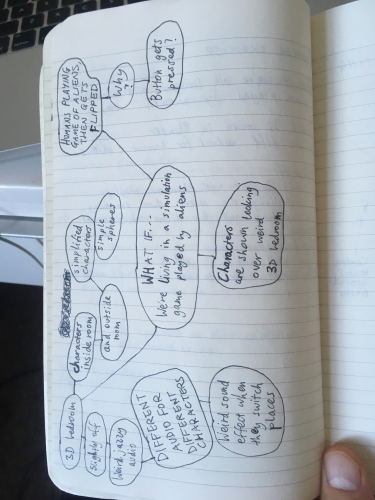 HUMANS PLAYING
GAME OF ALIENS,
THEN GETS
FLIPPED
Why
?
Button gets
pressed?
simplified
characters
simple
spheres
WHAT IF...
We're living in a simulation
game played by aliens
Characters
are shown looking
over weird
3D bedroom
3D bedroom
characters
inside room
and outside
room
Slightly off
Weird jazzy
audio
DIFFERENT
AUDIO FOR
DIFFERENT
CHARACTERS
Weird sound
effect when
they switch
places